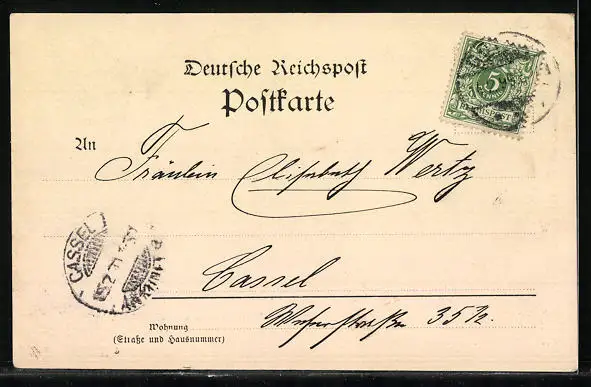 Deutsche Reichspost
Postkarte
5
An
Fräulein Elisabeth Wertz
CASSEL
Cassel
Weserstraße 35½.
Wohnung
(Straße und Hausnummer)